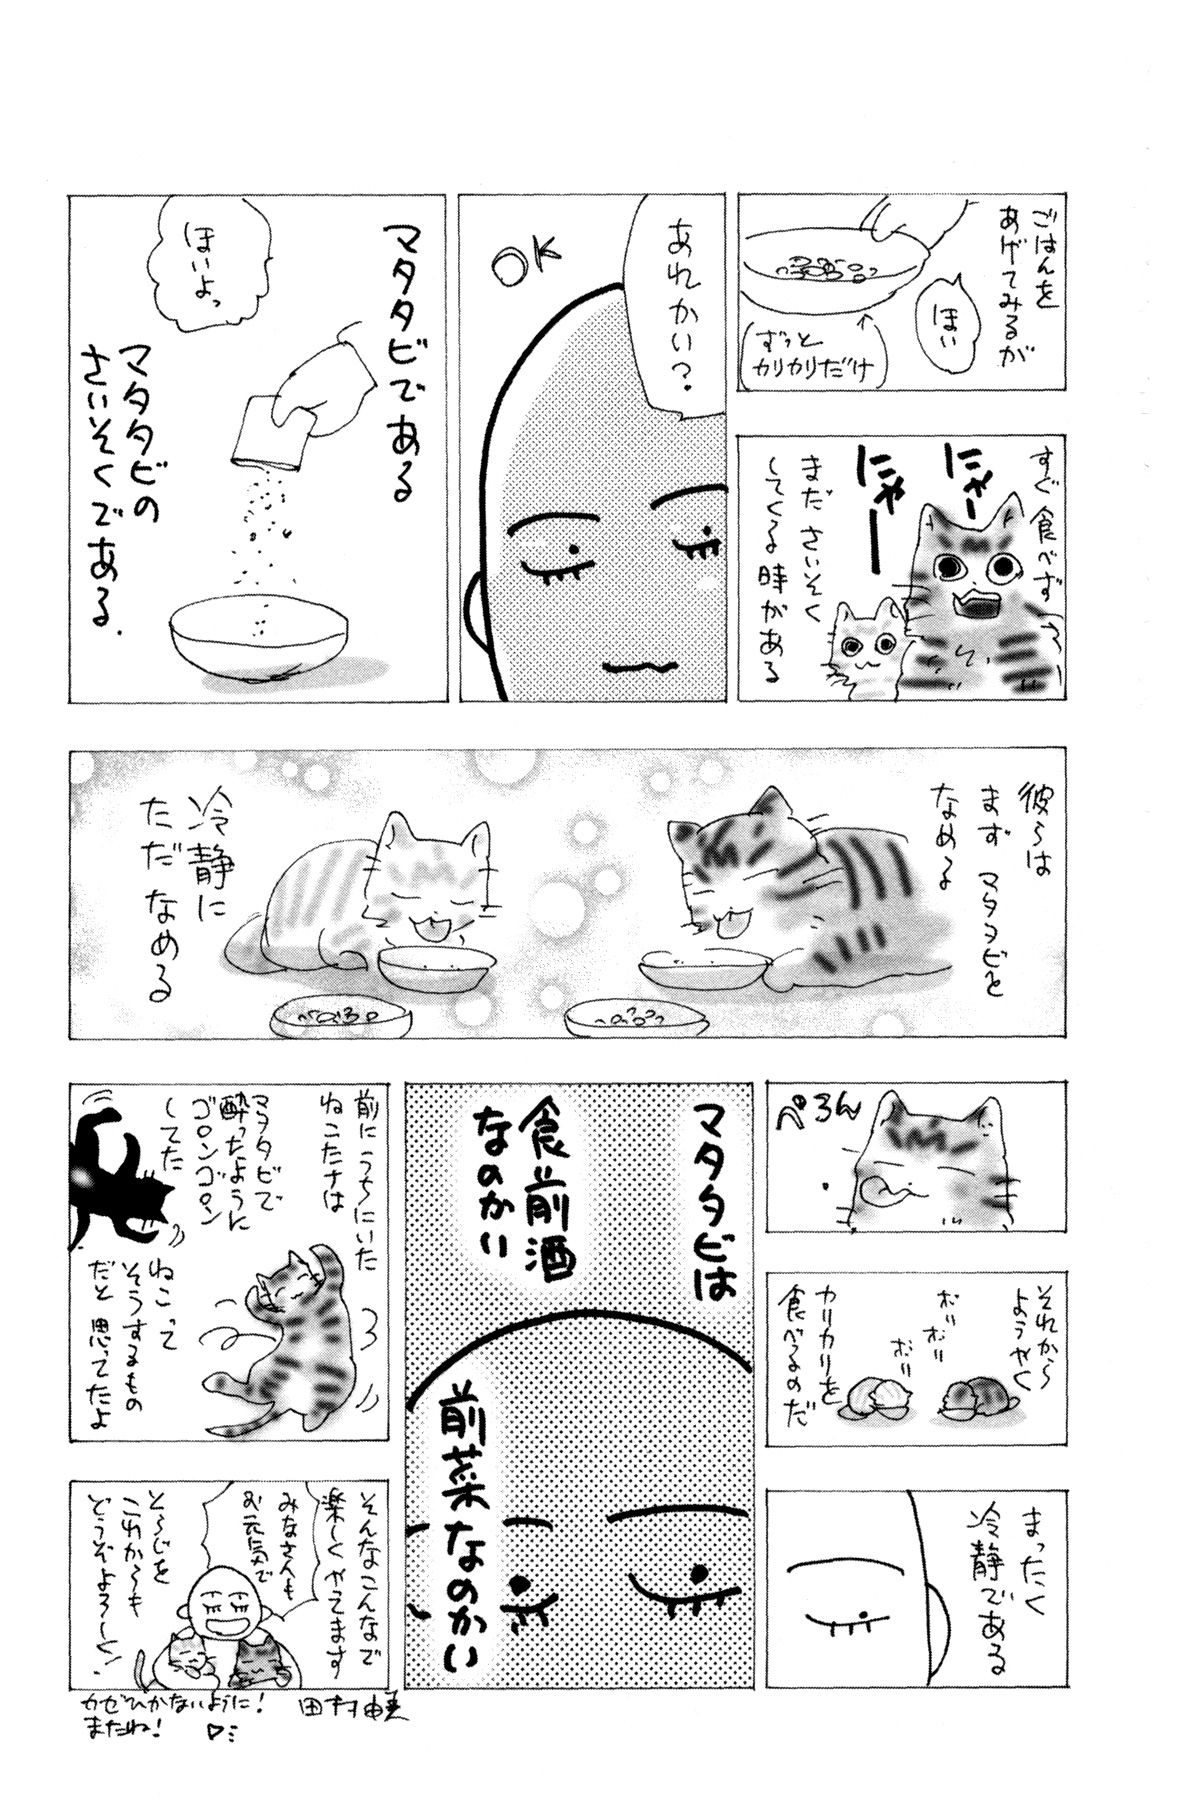 ごはんを
あげてみるが
ほい
ずっと
カリカリだけ
すぐ食べず
にゃー
にゃー
まださいそく
してくる時がある
あれかい?
OK
マタタビである
ほいよっ
マタタビの
さいそくである.
彼らは
まずマタタビを
なめる
冷静に
ただなめる
ぺろん
それから
ようやく
カリカリを
食べるのだ
ポリ
ポリ
ポリ
まったく
冷静である
マタタビは
食前酒
なのかい
前菜なのかい
前にうちにいた
ねこたちは
マタタビで
酔ったように
ゴロンゴロン
してた
ねこって
そうするもの
だと思ってたよ
そんなこんなで
楽しくやてます
みなさんも
お元気で
と〜じを
これからも
どうぞよろしく!
カゼひかないように!
またね!
田村由美